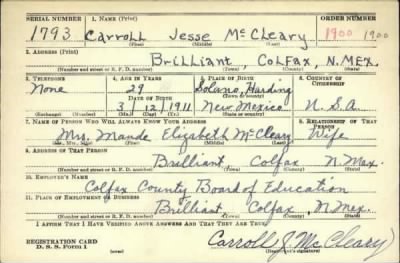 SERIAL NUMBER 1. NAME (Print) ORDER NUMBER
1793 Carroll Jesse McCleary 1900 1900
(First) (Middle) (Last)
2. ADDRESS (Print)
Brilliant, Colfax, N.Mex.
(Number and street or R. F. D. number) (Town) (County) (State)
3. TELEPHONE 4. AGE IN YEARS 5. PLACE OF BIRTH 6. COUNTRY OF CITIZENSHIP
None 29 Solano, Harding
DATE OF BIRTH (Town or county)
3 12 1911 New Mexico U.S.A.
(Exchange) (Number) (Mo.) (Day) (Yr.) (State or country)
7. NAME OF PERSON WHO WILL ALWAYS KNOW YOUR ADDRESS 8. RELATIONSHIP OF THAT PERSON
Mrs. Maude Elizabeth McCleary Wife
(Mr., Mrs., Miss) (First) (Middle) (Last)
9. ADDRESS OF THAT PERSON
Brilliant, Colfax N.Mex.
(Number and street or R. F. D. number) (Town) (County) (State)
10. EMPLOYER'S NAME
Colfax County Board of Education
11. PLACE OF EMPLOYMENT OR BUSINESS
Brilliant, Colfax, N.Mex.
(Number and street or R. F. D. number) (Town) (County) (State)
I AFFIRM THAT I HAVE VERIFIED ABOVE ANSWERS AND THAT THEY ARE TRUE.
REGISTRATION CARD
D. S. S. Form 1 Carroll J. McCleary
(Registrant's signature)